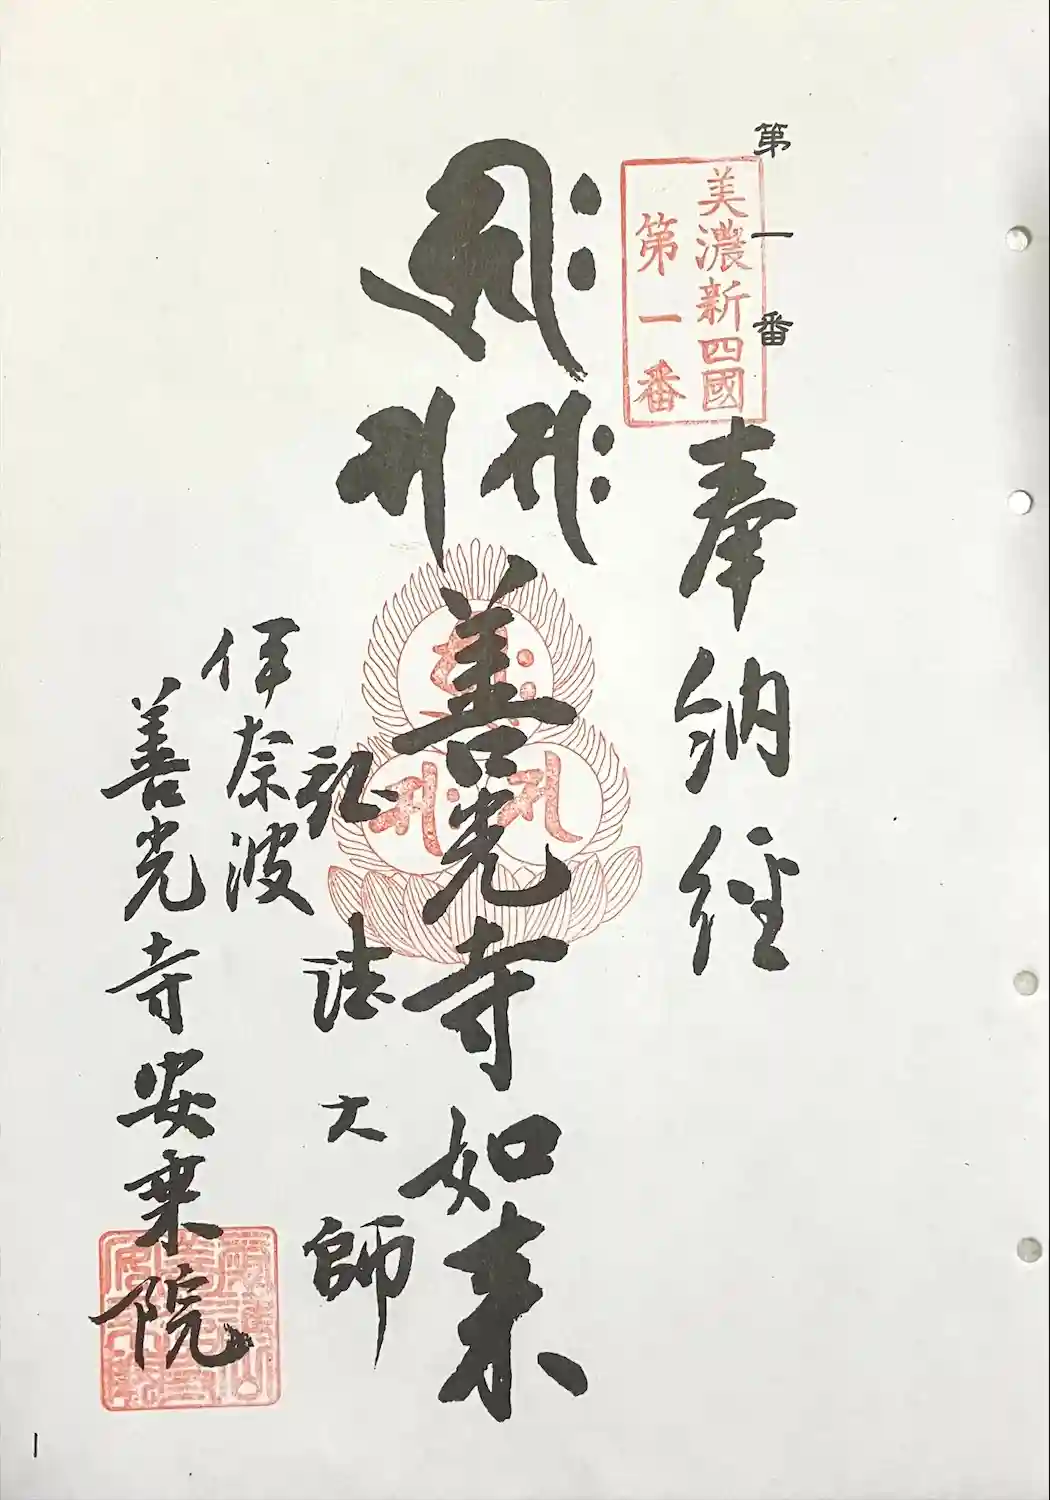 第一番
美濃新四國
第一番
奉納経
善光寺如来
弘法大師
伊奈波
善光寺安乗院
1